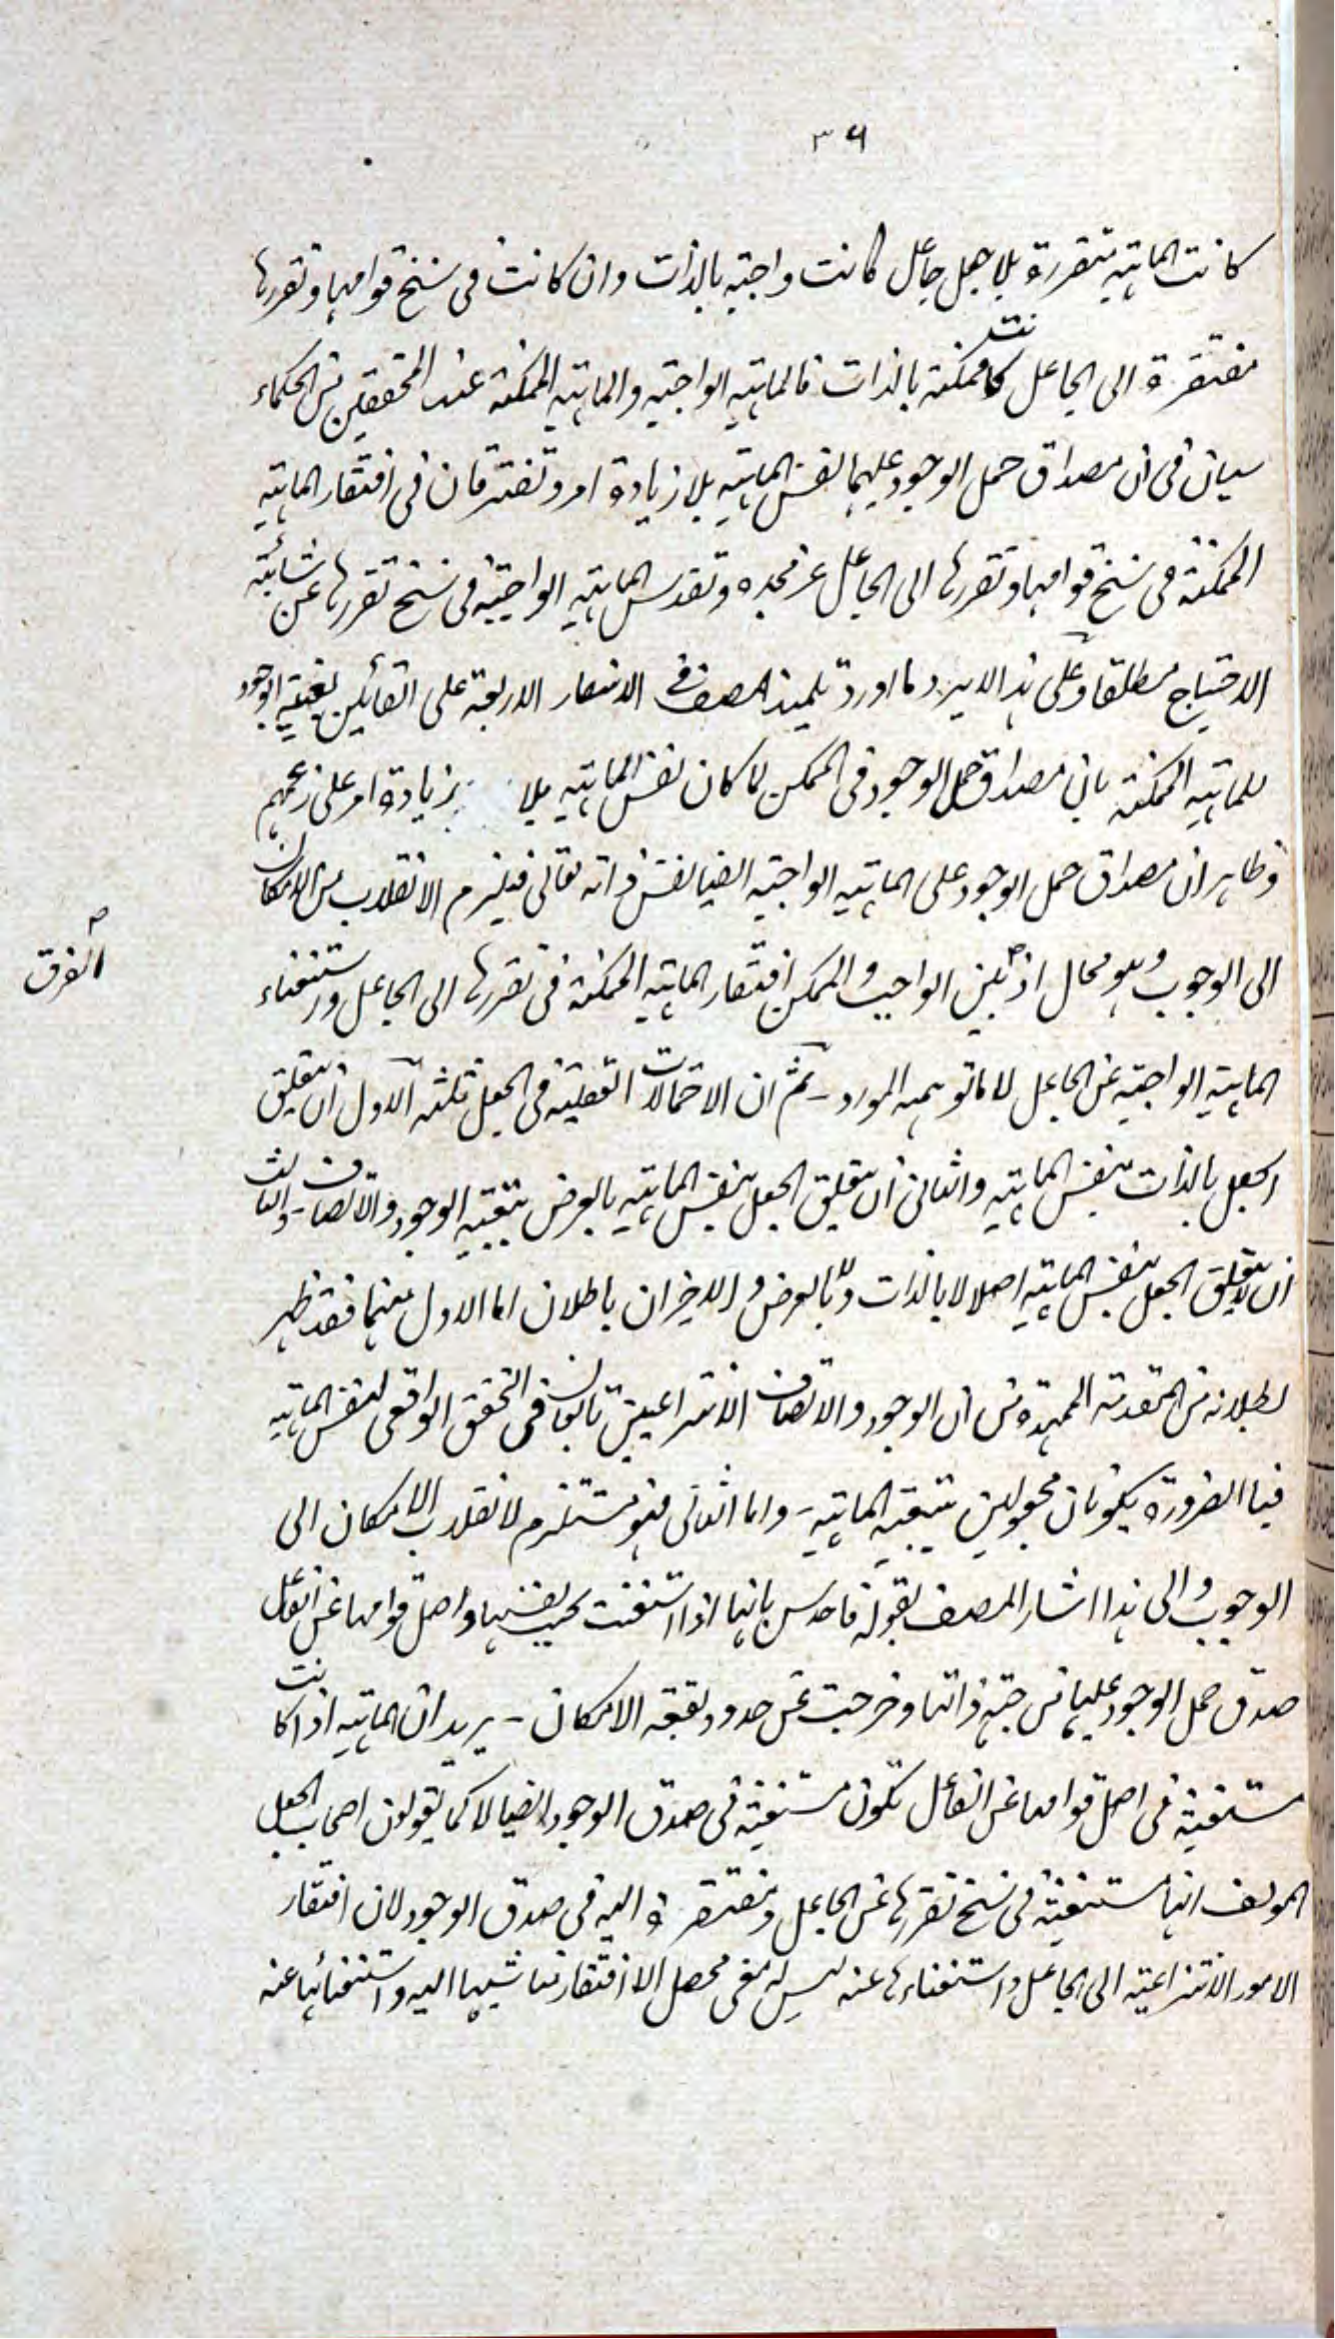 ٣٦
كانت الماهية متقررة بلا جعل جاعل كانت واجبة بالذات وان كانت فى سنخ قوامها وتقررها
مفتقرة الى الجاعل كانت ممكنة بالذات فالماهية الواجبة والماهية الممكنة عند المحققين من الحكماء
سيان فى ان مصداق حمل الوجود عليهما نفس الماهية بلا زيادة امر وتفترقان فى افتقار الماهية
الممكنة فى سنخ قوامها وتقررها الى الجاعل عز مجده وتقدس الماهية الواجبة فى سنخ تقررها عن شائبة
الاحتياج مطلقا وعلى هذا لا يرد ما اورد تلميذ المصنف فى الاسفار الاربعة على القائلين بعينية الوجود
للماهية الممكنة بان مصداق حمل الوجود فى الممكن لما كان نفس الماهية بلا زيادة امر على زعمهم
وظاهر ان مصداق حمل الوجود على الماهية الواجبة ايضا نفس ذاته تعالى فيلزم الانقلاب من الامكان
الى الوجوب وهو محال اذ بين الواجب والممكن افتقار الماهية الممكنة فى تقررها الى الجاعل واستغناء
الفرق
الماهية الواجبة عن الجاعل لا ما توهمه المورد ـ ثم ان الاحتمالات العقلية فى الجعل ثلثة الاول ان يتعلق
الجعل بالذات بنفس الماهية والثانى ان يتعلق الجعل بنفس الماهية بالعرض بتبعية الوجود والاتصاف ـ والثالث
ان لا يتعلق الجعل بنفس الماهية اصلا لا بالذات ولا بالعرض والاخيران باطلان اما الاول منهما فقد ظهر
بطلانه من المقدمة الممهدة من ان الوجود والاتصاف الانتزاعيين تابعان فى التحقق الواقعى لنفس الماهية
فبالضرورة يكونان مجعولين بتبعية الماهية ـ واما الثانى فهو مستلزم لانقلاب الامكان الى
الوجوب والى هذا اشار المصنف بقوله فاحدس بانها اذا استغنت بحسب نفسها واصل قوامها عن الفاعل
صدق حمل الوجود عليها من جهة ذاتها وخرجت عن حدود بقعة الامكان ـ يريد ان الماهية اذا كانت
مستغنية فى اصل قوامها عن الفاعل تكون مستغنية فى صدق الوجود ايضا لا كما يقولون اصحاب الجعل
المولف انها مستغنية فى سنخ تقررها عن الجاعل ومفتقرة اليه فى صدق الوجود لان افتقار
الامور الانتزاعية الى الجاعل واستغناءها عنه ليس له معنى محصل الا افتقار مناشيها اليه واستغنائها عنه